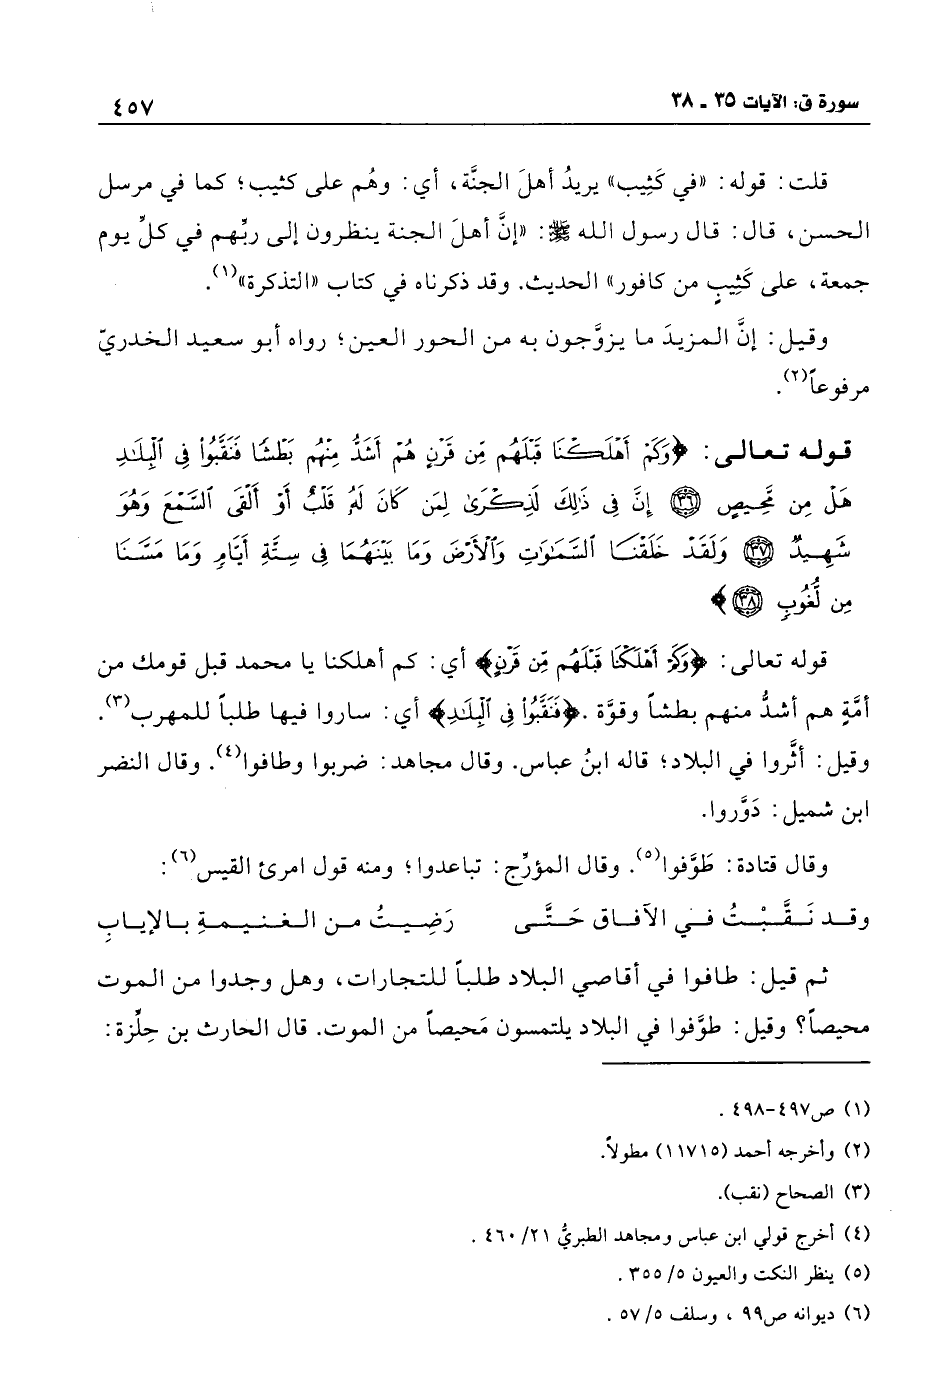 سورة ق: الآيات ٣٥ ـ ٣٨
٤٥٧
قلت: قوله: «في كَثِيب» يريدُ أهلَ الجنَّة، أي: وهُم على كثيب؛ كما في مرسل
الحسن، قال: قال رسول الله ﷺ: «إنَّ أهلَ الجنة ينظرون إلى ربِّهم في كلِّ يوم
جمعة، على كَثِيبٍ من كافور» الحديث. وقد ذكرناه في كتاب «التذكرة»(١).
وقيل: إنَّ المزيدَ ما يزوَّجون به من الحور العين؛ رواه أبو سعيد الخدريّ
مرفوعاً(٢).
قوله تعالى: ﴿وَكَمْ أَهْلَكْنَا قَبْلَهُم مِّن قَرْنٍ هُمْ أَشَدُّ مِنْهُم بَطْشًا فَنَقَّبُوا۟ فِى ٱلْبِلَٰدِ
هَلْ مِن مَّحِيصٍ ٣٦ إِنَّ فِى ذَٰلِكَ لَذِكْرَىٰ لِمَن كَانَ لَهُۥ قَلْبٌ أَوْ أَلْقَى ٱلسَّمْعَ وَهُوَ
شَهِيدٌ ٣٧ وَلَقَدْ خَلَقْنَا ٱلسَّمَٰوَٰتِ وَٱلْأَرْضَ وَمَا بَيْنَهُمَا فِى سِتَّةِ أَيَّامٍ وَمَا مَسَّنَا
مِن لُّغُوبٍ ٣٨﴾
قوله تعالى: ﴿وَكَمْ أَهْلَكْنَا قَبْلَهُم مِّن قَرْنٍ﴾ أي: كم أهلكنا يا محمد قبل قومك من
أمَّةٍ هم أشدُّ منهم بطشاً وقوَّة. ﴿فَنَقَّبُوا۟ فِى ٱلْبِلَٰدِ﴾ أي: ساروا فيها طلباً للمهرب(٣).
وقيل: أثَّروا في البلاد؛ قاله ابنُ عباس. وقال مجاهد: ضربوا وطافوا(٤). وقال النضر
ابن شميل: دَوَّروا.
وقال قتادة: طَوَّفوا(٥). وقال المؤرِّج: تباعدوا؛ ومنه قول امرئ القيس(٦):
وقد نَقَّبْتُ في الآفاق حَتَّى رَضِيتُ من الغنيمةِ بالإيابِ
ثم قيل: طافوا في أقاصي البلاد طلباً للتجارات، وهل وجدوا من الموت
محيصاً؟ وقيل: طوَّفوا في البلاد يلتمسون مَحيصاً من الموت. قال الحارث بن حِلِّزة:
(١) ص٤٩٧-٤٩٨ .
(٢) وأخرجه أحمد (١١٧١٥) مطولاً.
(٣) الصحاح (نقب).
(٤) أخرج قولي ابن عباس ومجاهد الطبريُّ ٢١/ ٤٦٠ .
(٥) ينظر النكت والعيون ٥/ ٣٥٥ .
(٦) ديوانه ص٩٩ ، وسلف ٥/ ٥٧ .